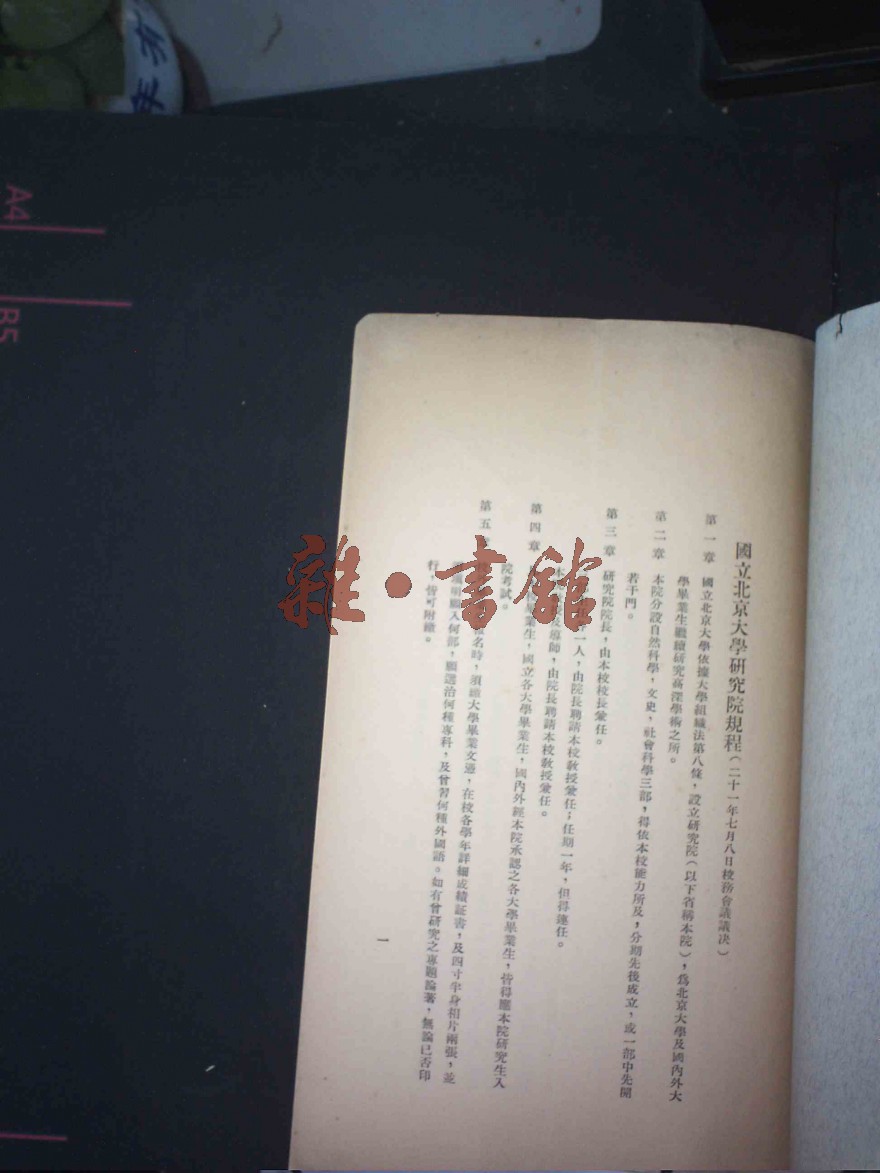 國立北京大學研究院規程(二十一年七月八日校務會議議決)
第一章 國立北京大學依據大學組織法第八條,設立研究院(以下省稱本院),爲北京大學及國內外大
學畢業生繼續研究高深學術之所。
第二章 本院分設自然科學,文史,社會科學三部,得依本校能力所及,分期先後成立,或一部中先開
若干門。
第三章 研究院院長,由本校校長兼任。
一人,由院長聘請本校敎授兼任;任期一年,但得連任。
導師,由院長聘請本校敎授兼任。
第四章 畢業生,國立各大學畢業生,國內外經本院承認之各大學畢業生,皆得應本院研究生入
院考試。
第五 名時,須繳大學畢業文憑,在校各學年詳細成績証書,及四寸半身相片兩張,並
明願入何部,願選治何種專科,及曾習何種外國語。如有曾研究之專題論著,無論已否印
行,皆可附繳。
一
雜·書館
A4
B5